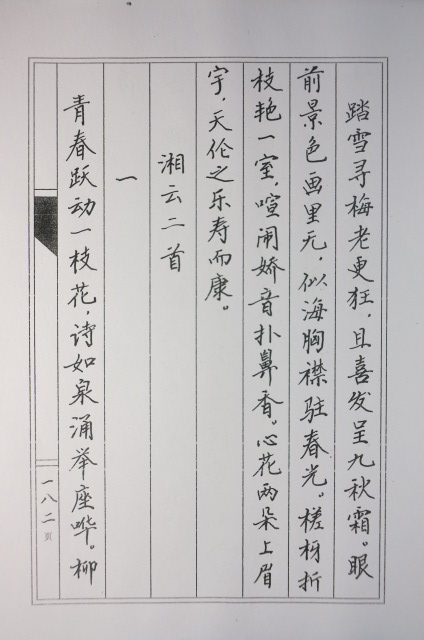 踏雪寻梅老更狂，且喜发呈九秋霜。眼
前景色画里无，似海胸襟驻春光。槎枒折
枝艳一室，喧闹娇音扑鼻香。心花两朵上眉
宇，天伦之乐寿而康。
湘云二首
一
青春跃动一枝花，诗如泉涌举座哗。柳
一八二页